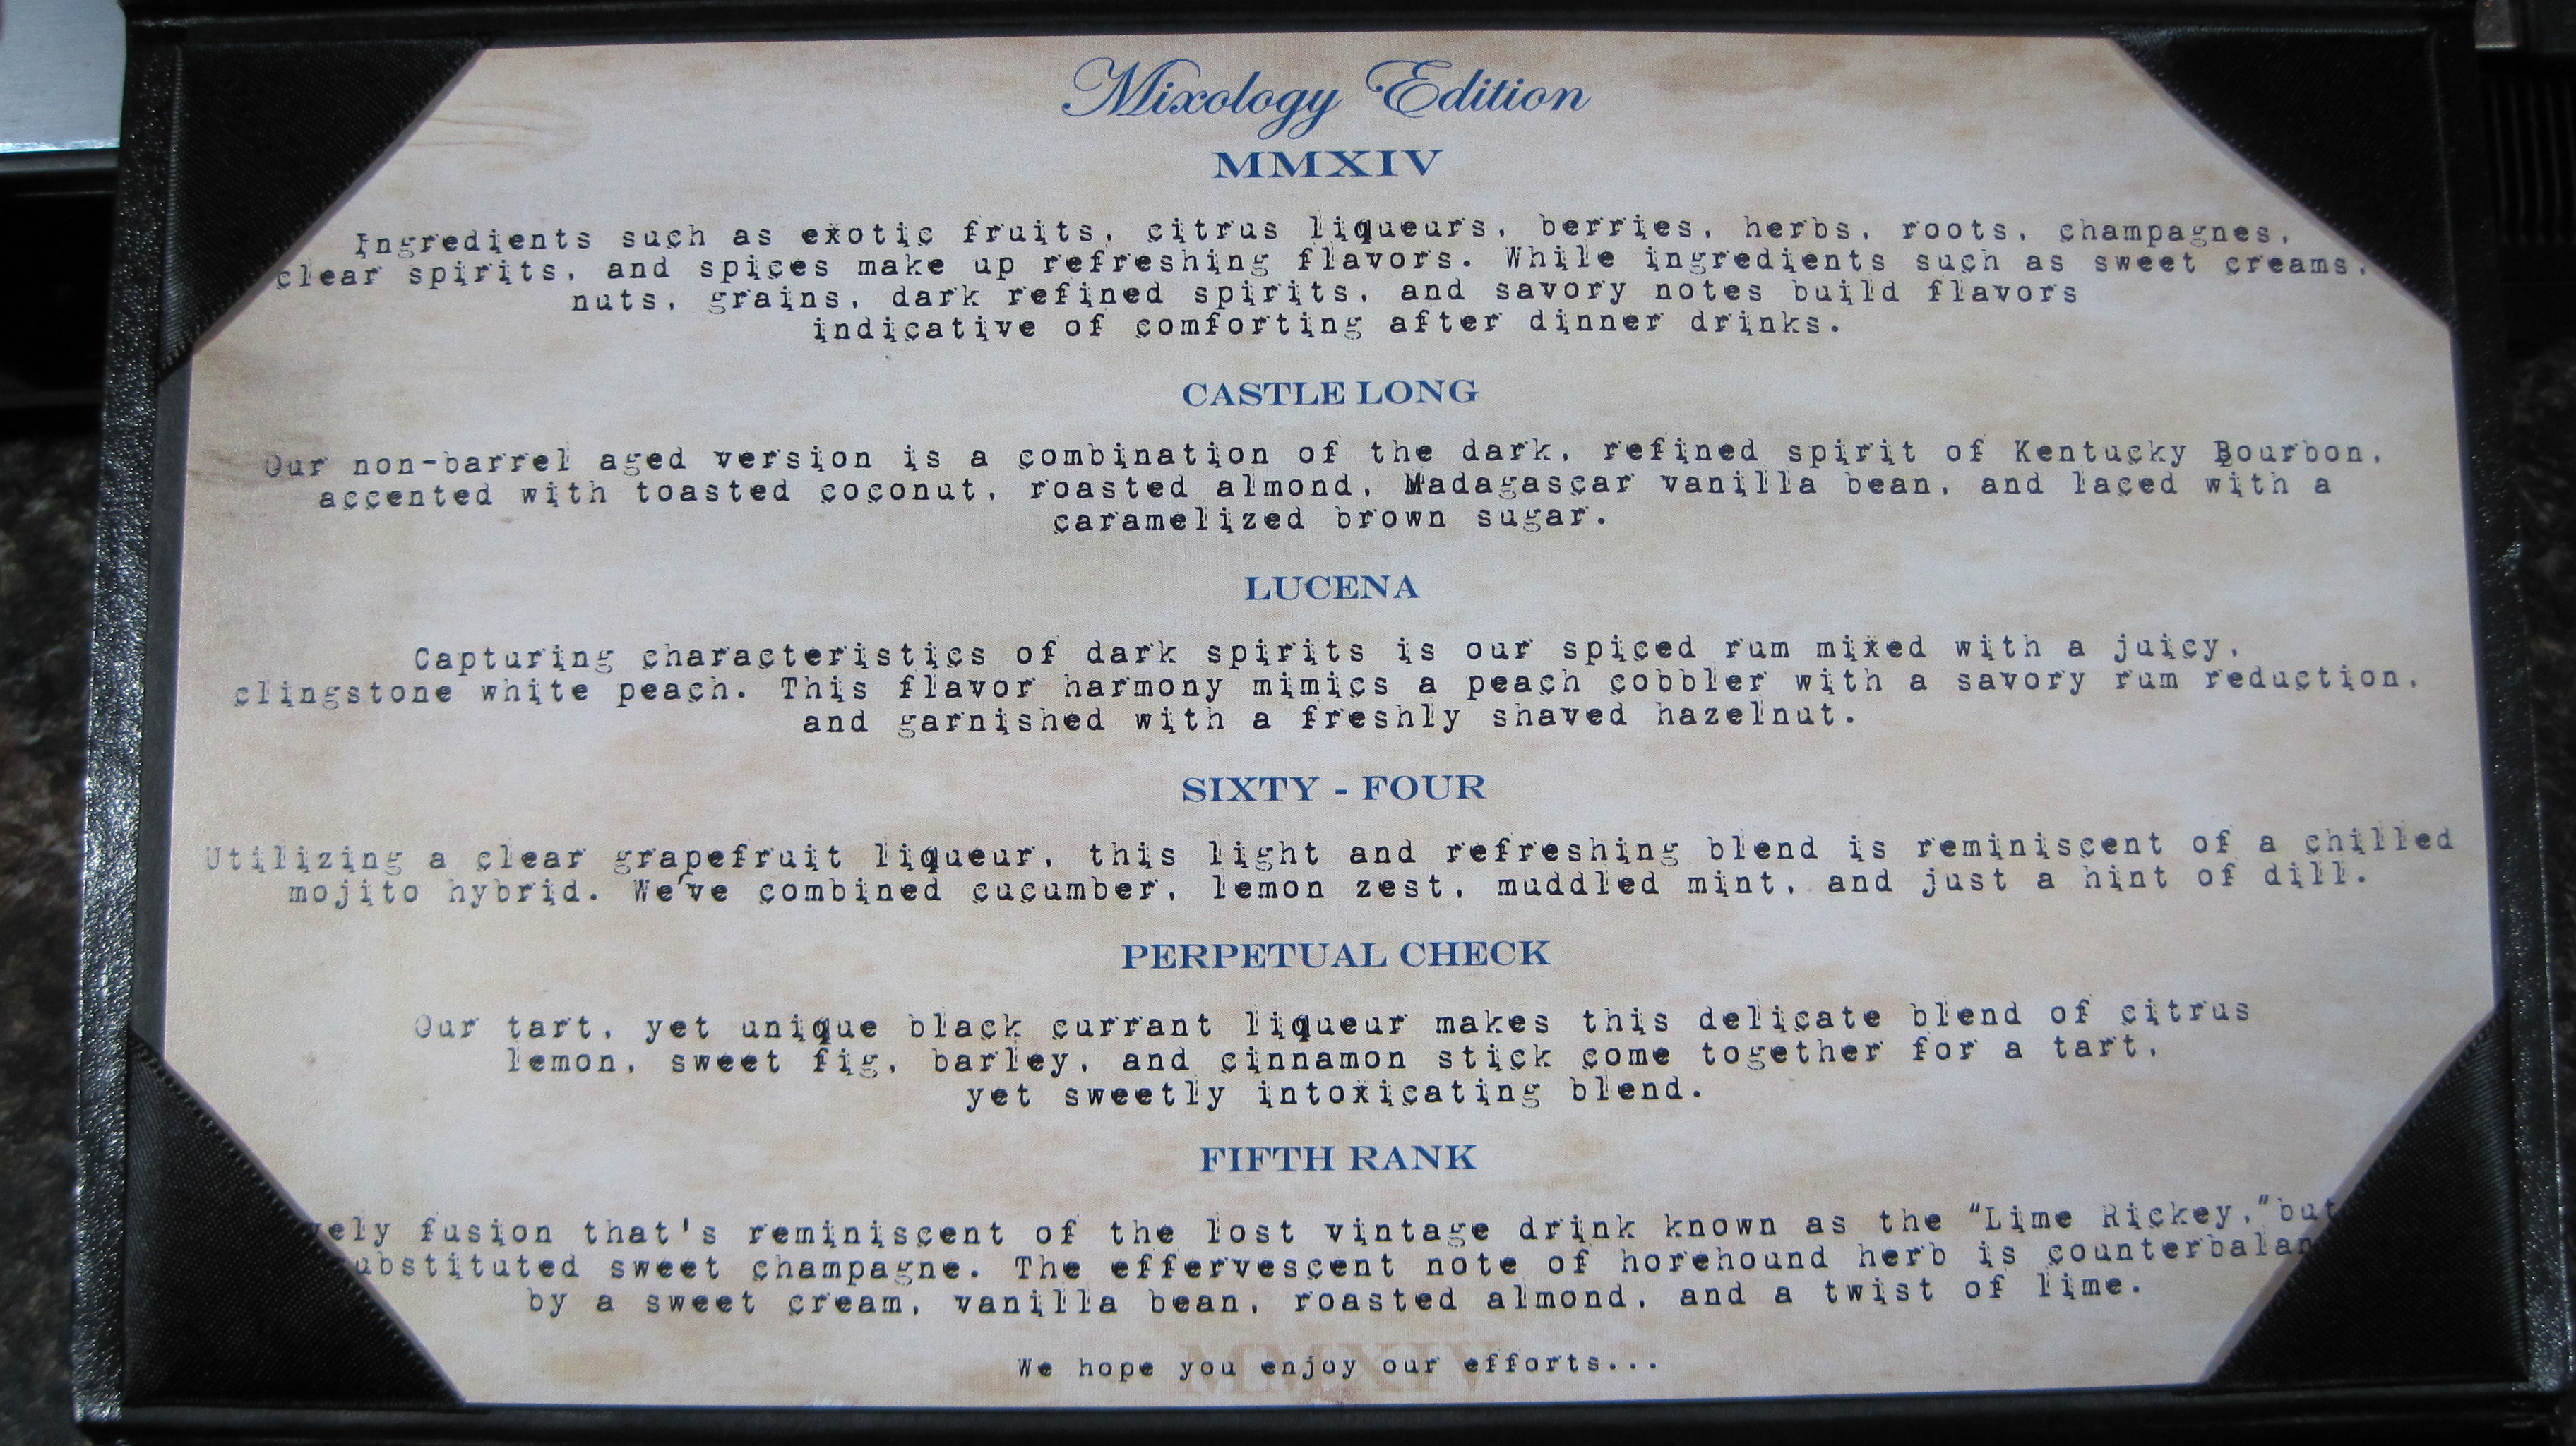 Mixology Edition
MMXIV
Ingredients such as exotic fruits, citrus liqueurs, berries, herbs, roots, champagnes,
clear spirits, and spices make up refreshing flavors. While ingredients such as sweet creams,
nuts, grains, dark refined spirits, and savory notes build flavors
indicative of comforting after dinner drinks.
CASTLE LONG
Our non-barrel aged version is a combination of the dark, refined spirit of Kentucky Bourbon,
accented with toasted coconut, roasted almond, Madagascar vanilla bean, and laced with a
caramelized brown sugar.
LUCENA
Capturing characteristics of dark spirits is our spiced rum mixed with a juicy,
clingstone white peach. This flavor harmony mimics a peach cobbler with a savory rum reduction,
and garnished with a freshly shaved hazelnut.
SIXTY - FOUR
Utilizing a clear grapefruit liqueur, this light and refreshing blend is reminiscent of a chilled
mojito hybrid. We've combined cucumber, lemon zest, muddled mint, and just a hint of dill.
PERPETUAL CHECK
Our tart, yet unique black currant liqueur makes this delicate blend of citrus
lemon, sweet fig, barley, and cinnamon stick come together for a tart,
yet sweetly intoxicating blend.
FIFTH RANK
vely fusion that's reminiscent of the lost vintage drink known as the "Lime Rickey," but
ubstituted sweet champagne. The effervescent note of horehound herb is counterbalan
by a sweet cream, vanilla bean, roasted almond, and a twist of lime.
MMXIV
We hope you enjoy our efforts...